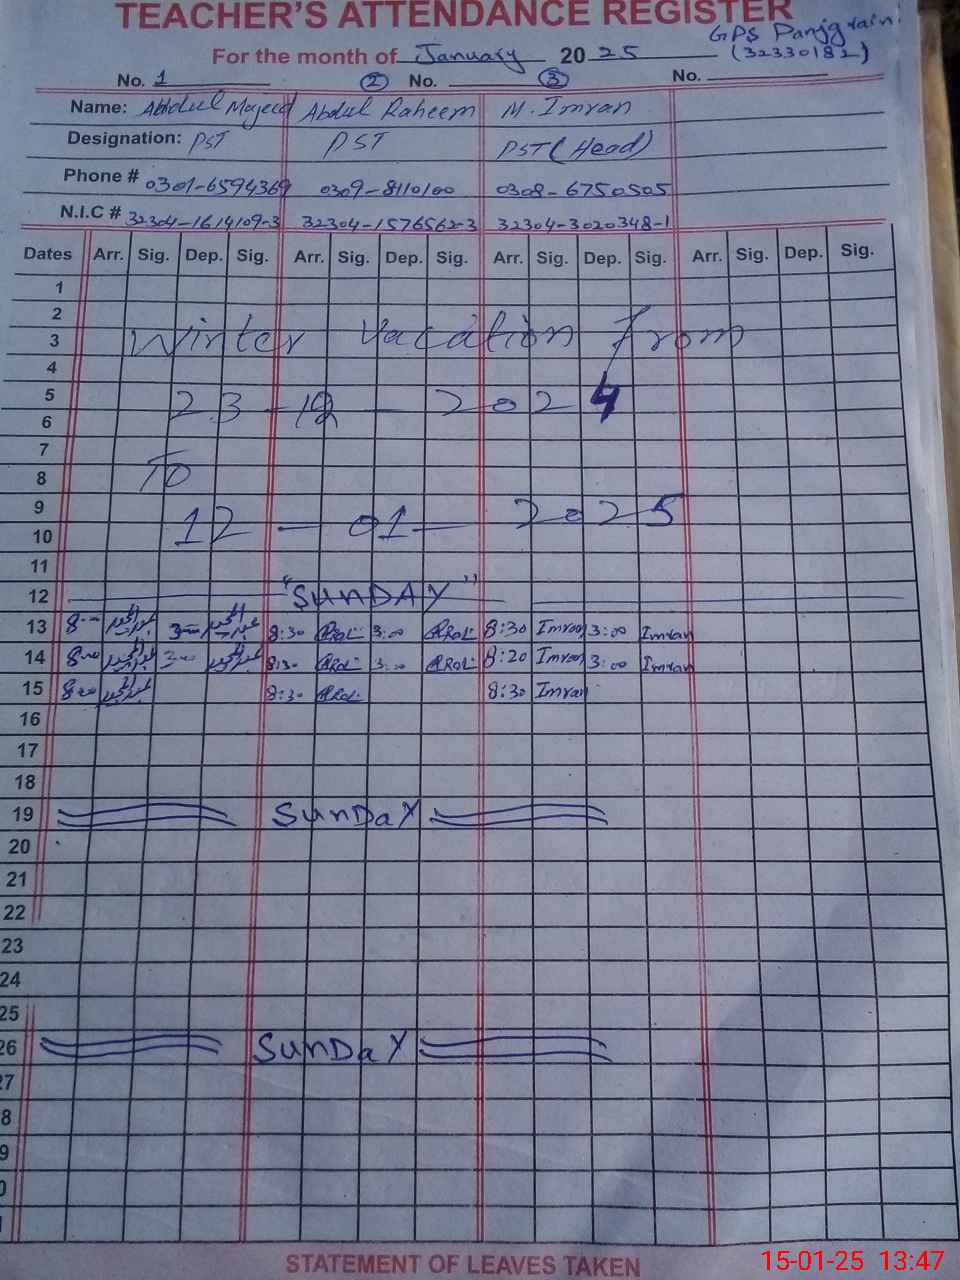 TEACHER'S ATTENDANCE REGISTER
GPS Panjgrain
For the month of January 2025 (32330182)
No. 1 (2) No. (3) No.
Name: Abdul Majeed Abdul Raheem M. Imran
Designation: PST PST PST (Head)
Phone # 0301-6594369 0309-8110100 0308-6750505
N.I.C # 32304-1614109-3 32304-1576562-3 32304-3020348-1
Dates Arr. Sig. Dep. Sig. Arr. Sig. Dep. Sig. Arr. Sig. Dep. Sig. Arr. Sig. Dep. Sig.
1
2
3 Winter Vacation From
4
5 23-12-2024
6
7
8 To
9 12-01-2025
10
11
12 "SUNDAY"
13 8:00 عبدالمجید 3:00 عبدالمجید 8:30 3:00 8:30 Imran 3:00 Imran
14 8:00 عبدالمجید 3:00 عبدالمجید 8:30 3:00 8:20 Imran 3:00 Imran
15 8:00 عبدالمجید 8:30 8:30 Imran
16
17
18
19 SunDaY
20
21
22
23
24
25
26 SunDaY
27
8
9
0
STATEMENT OF LEAVES TAKEN
15-01-25 13:47